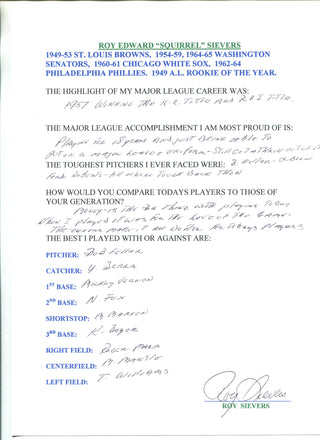 ROY EDWARD "SQUIRREL" SIEVERS
1949-53 ST. LOUIS BROWNS, 1954-59, 1964-65 WASHINGTON
SENATORS, 1960-61 CHICAGO WHITE SOX, 1962-64
PHILADELPHIA PHILLIES. 1949 A.L. ROOKIE OF THE YEAR.
THE HIGHLIGHT OF MY MAJOR LEAGUE CAREER WAS:
1957 WINNING THE H.R. TITLE AND R B I TITLE
THE MAJOR LEAGUE ACCOMPLISHMENT I AM MOST PROUD OF IS:
PLAYING FOR 18 YEARS AND JUST BEING ABLE TO
PUT ON A MAJOR LEAGUE UNIFORM - STILL GET A THRILL
THE TOUGHEST PITCHERS I EVER FACED WERE: B. FELLER
AND ROBERTS - ALL WERE TOUGH BACK THEN
HOW WOULD YOU COMPARE TODAYS PLAYERS TO THOSE OF
YOUR GENERATION?
MONEY - IS THE BIG THING WITH PLAYERS TODAY
WHEN I PLAYED IT WAS FOR THE LOVE OF THE GAME.
THE OWNERS MAKE IT ALL BETTER FOR TODAYS PLAYERS
THE BEST I PLAYED WITH OR AGAINST ARE:
PITCHER: BOB FELLER
CATCHER: Y. BERRA
1ST BASE: MICKEY VERNON
2ND BASE: N FOX
SHORTSTOP: M. MARION
3RD BASE: K. BOYER
RIGHT FIELD: ROGER MARIS
CENTERFIELD: M. MANTLE
LEFT FIELD: T. WILLIAMS
Roy Sievers
ROY SIEVERS